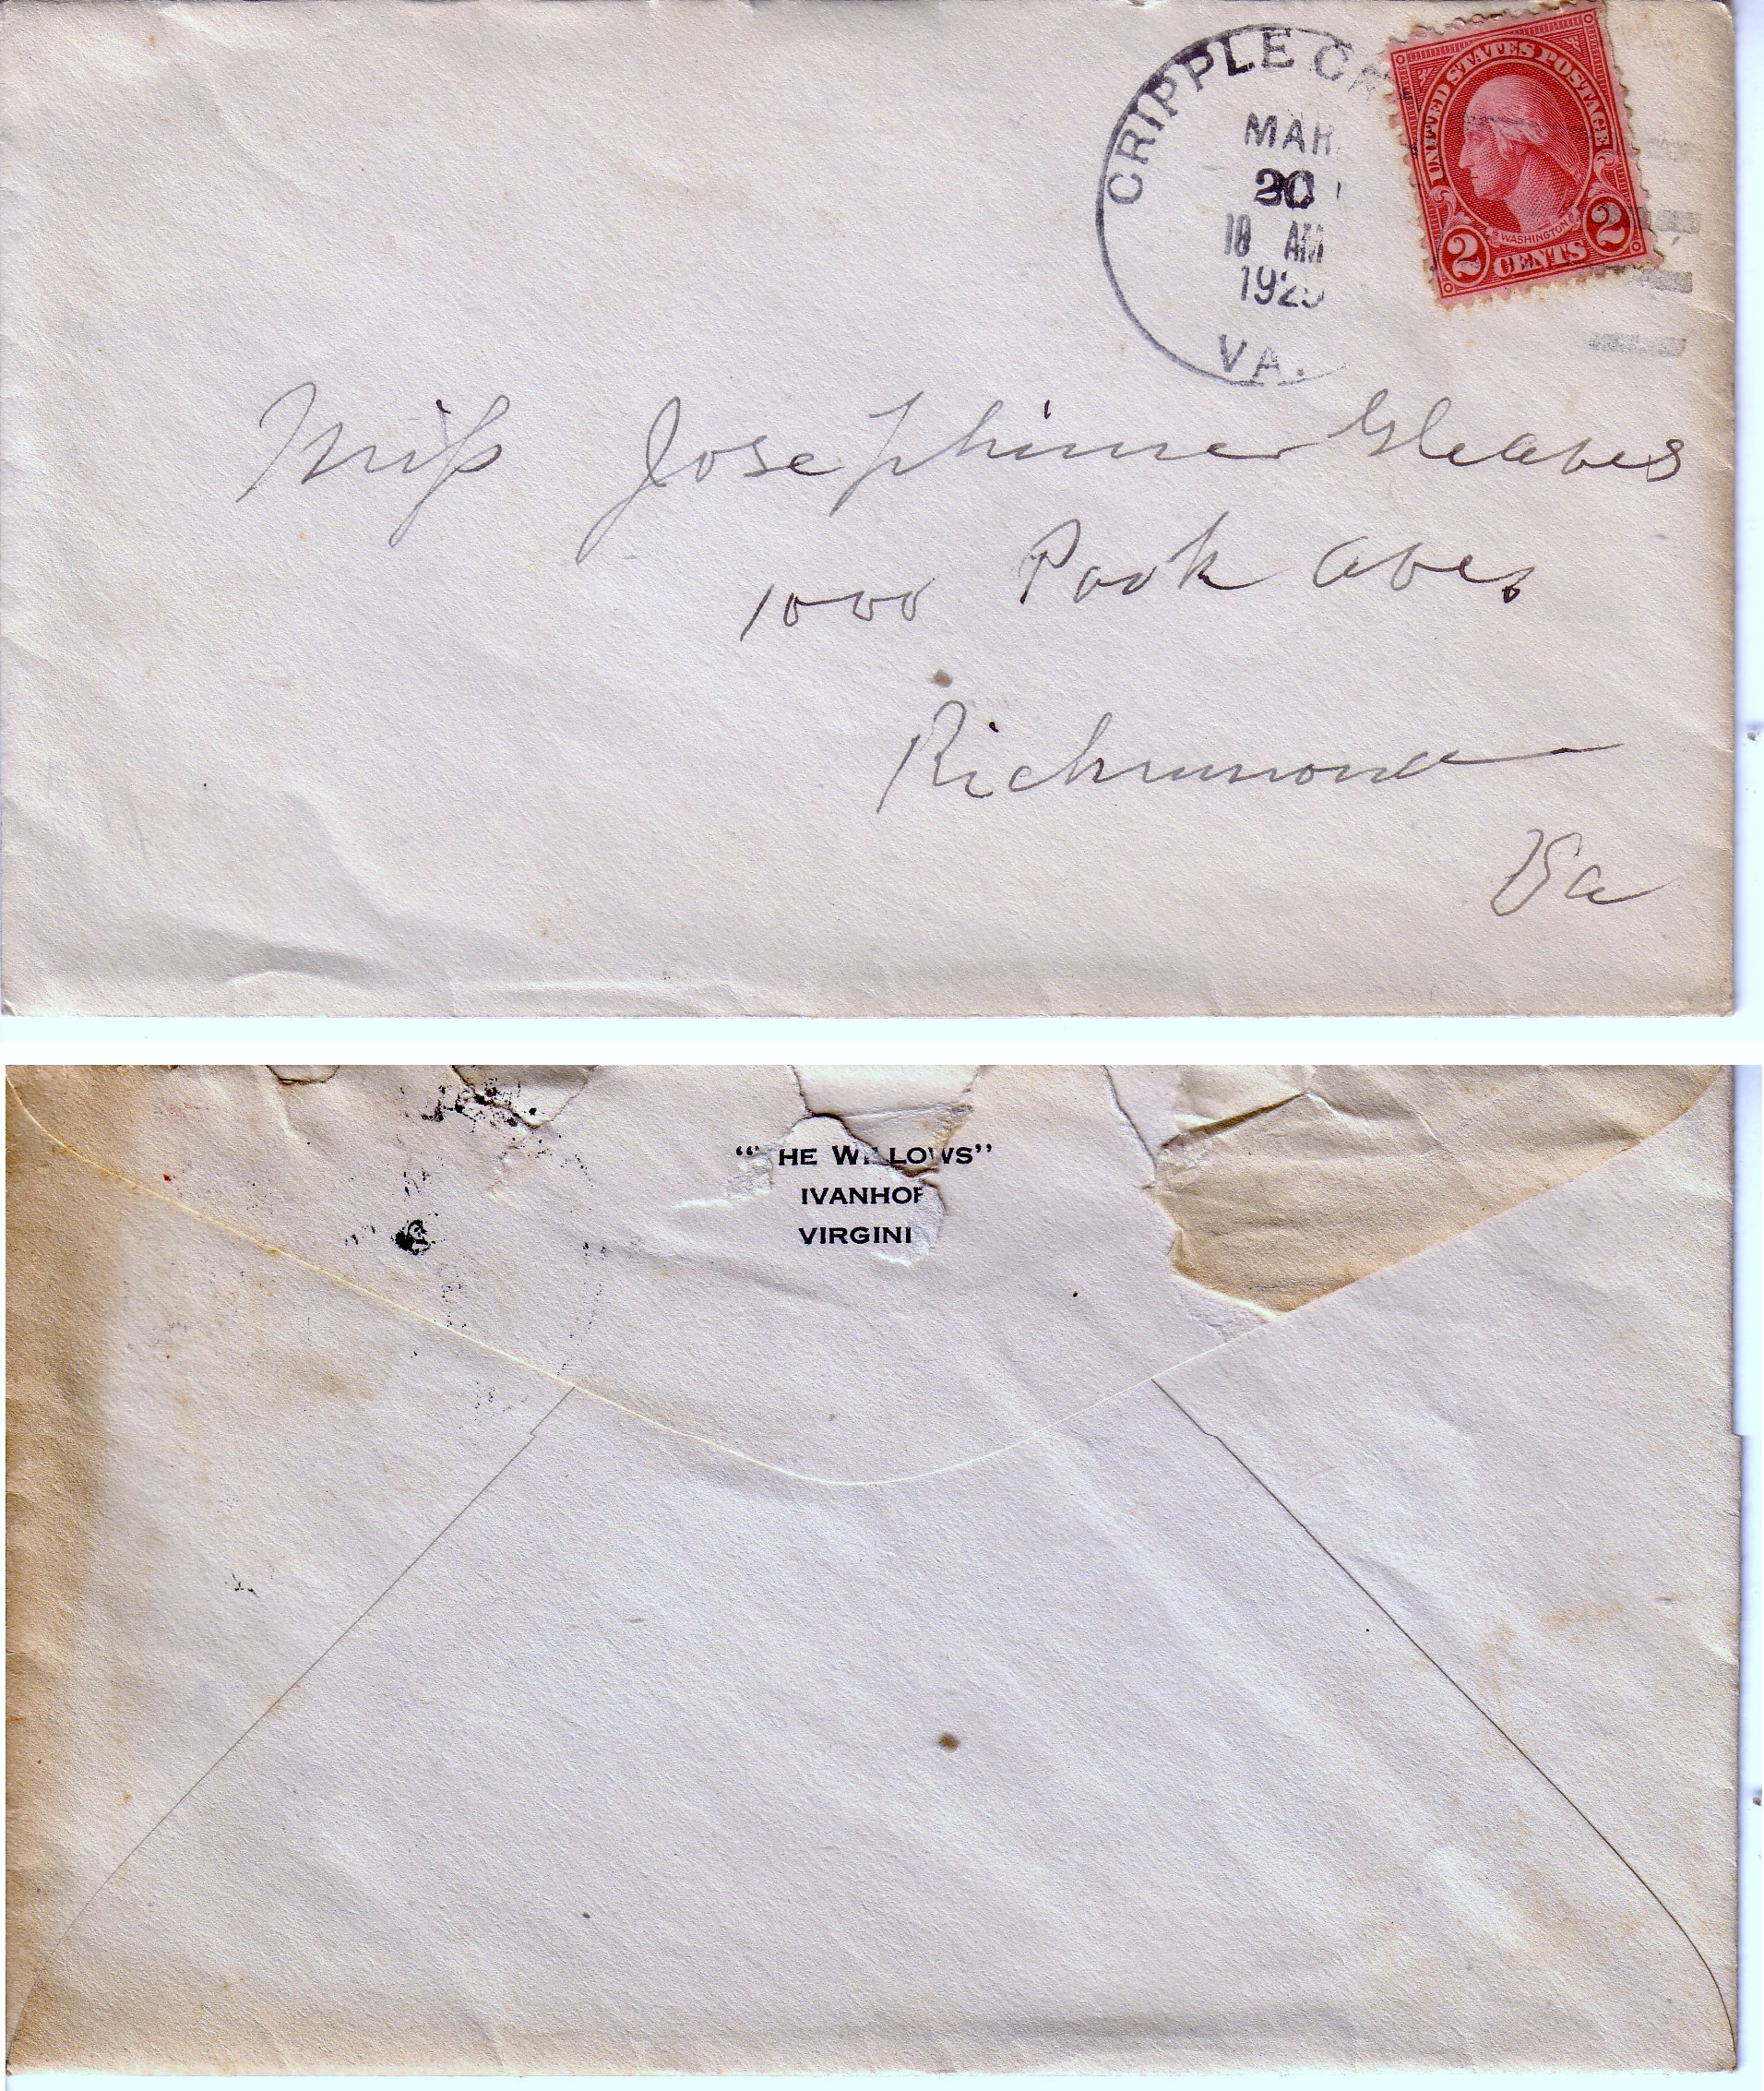 CRIPPLE C
MAR
20
10 AM
192
VA.
UNITED STATES POSTAGE
WASHINGTON
2 CENTS 2
Miss Josephine Gleaves
1000 Park Ave.
Richmond
Va
"THE WILLOWS"
IVANHOE
VIRGINI